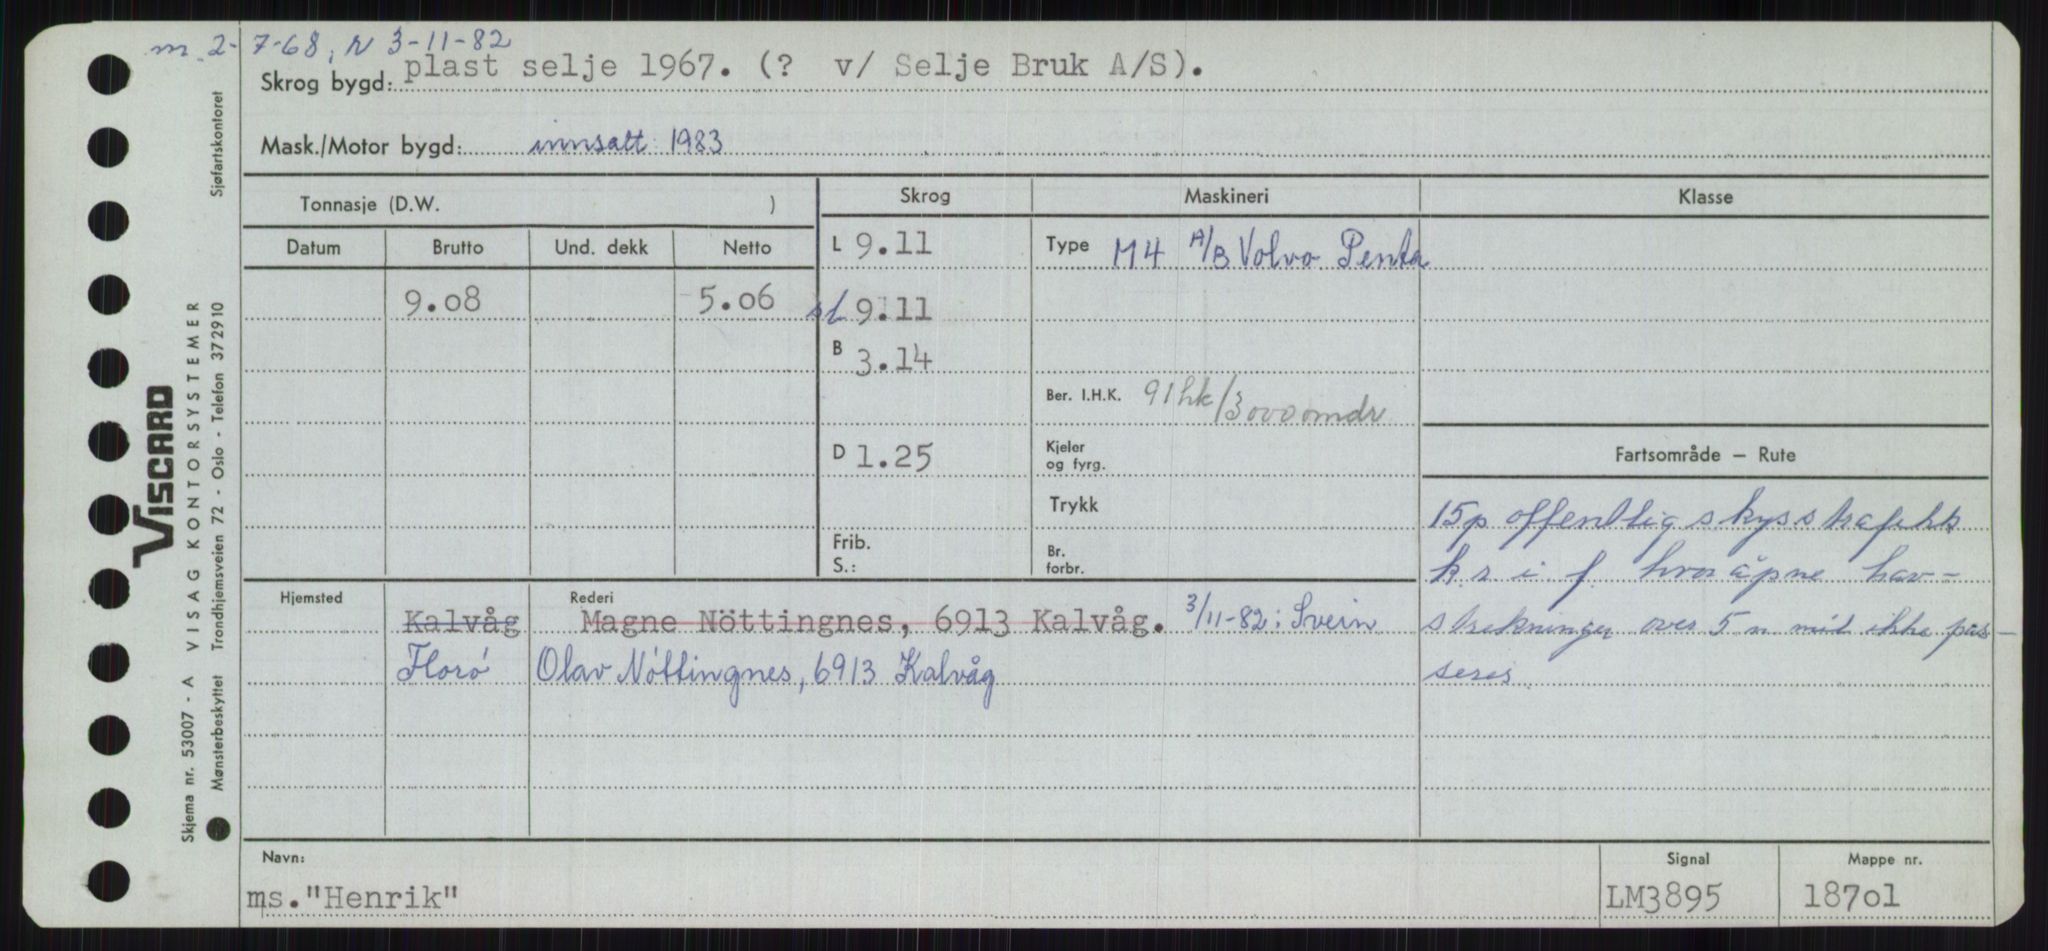 m. 2-7-68, N 3-11-82
Skrog bygd: plast selje 1967. (? v/ Selje Bruk A/S).
Mask./Motor bygd: innsatt 1983
Tonnasje (D.W. )
Skrog
Maskineri
Klasse
Datum Brutto Und. dekk Netto
L 9.11
Type M4 A/B Volvo Penta
9.08 5.06
sl 9.11
B 3.14
Ber. I.H.K. 91hk/3000omdr
D 1.25
Kjeler
og fyrg.
Fartsområde – Rute
Trykk
15p offentlig skysstrafikk
Frib.
S.:
Br.
forbr.
k s i f hvor åpne hav-
Hjemsted
Rederi
Kalvåg Magne Nöttingnes, 6913 Kalvåg. 3/11-82: Svein
strekninger over 5 n mil ikke pas-
Florø Olav Nöttingnes, 6913 Kalvåg
seres
Navn:
ms."Henrik"
Signal
LM3895
Mappe nr.
187o1
VISCARD
Skjema nr. 53007 - A VISAG KONTORSYSTEMER
Mønsterbeskyttet Trondhjemsveien 72 - Oslo - Telefon 372910
Sjøfartskontoret